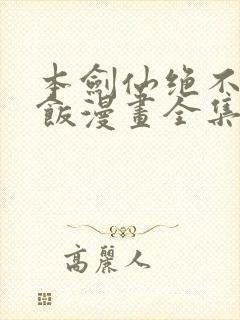 本劍仙绝不
飯漫畫全集
高麗人